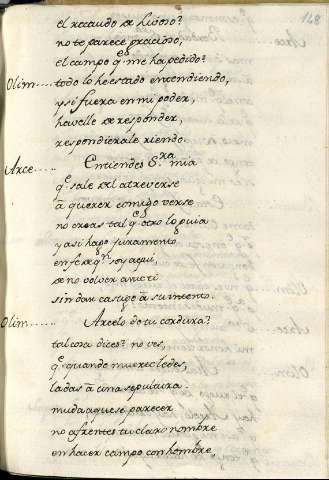 148
el recaudo de liuoso?
no te parece gracioso,
el campo q̃ me ha pedido?
Olim..... todo lo he estado entendiendo,
y si fuera en mi poder,
havelle de responder,
respondierale riendo.
Arce..... Entiendes S.ra mia
q̃ sale del atreverse
ā querer comigo verse
no creas tal q̃ otro lo guia
y asi hago juramento
en fe de q.n soy aqui,
de no volver ante ti
sin dar castigo ā su intento.
Olim...... Arcelo de tu cordura?
tal cosa dices? no ves,
q̃ quando muerte le des,
la das ā una sepultura.
muda aquese parecer
no afrentes tu claro nombre
en hacer campo con hombre